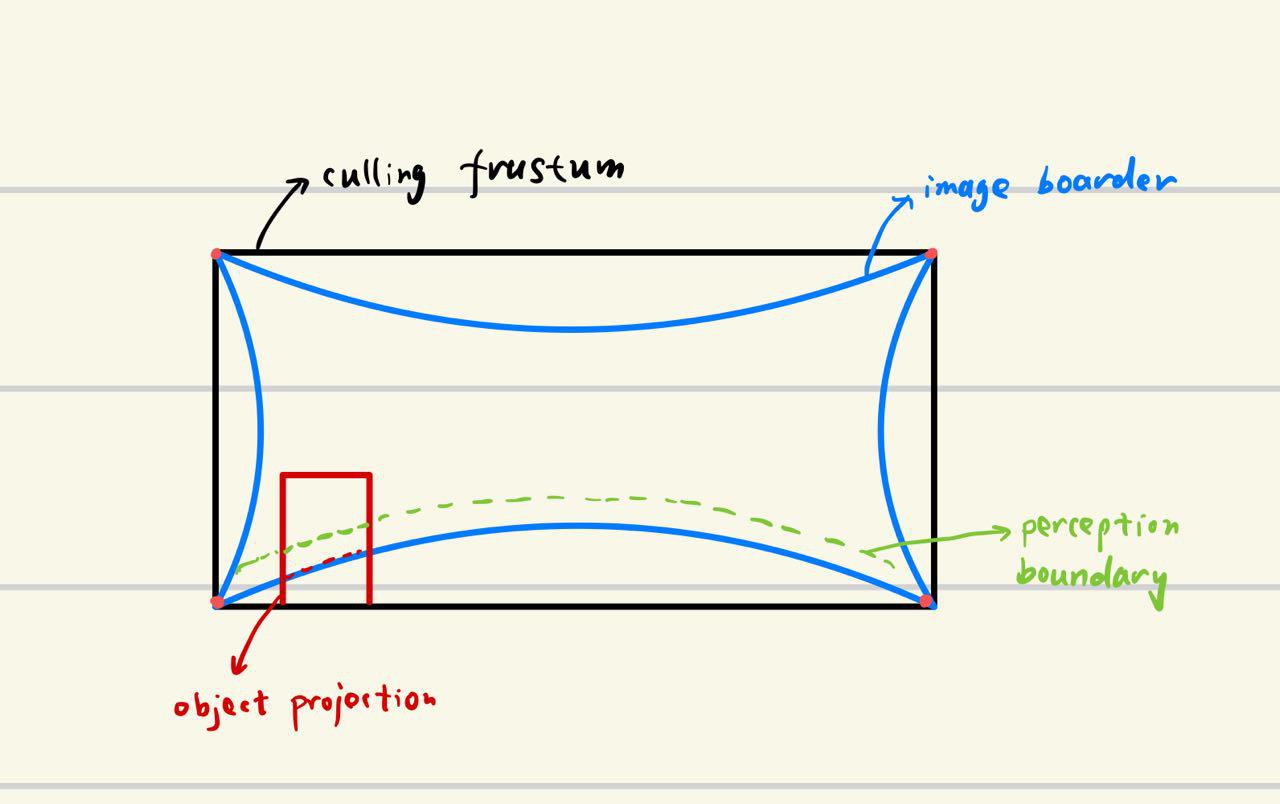 culling frustum
image boarder
perception
boundary
object projection